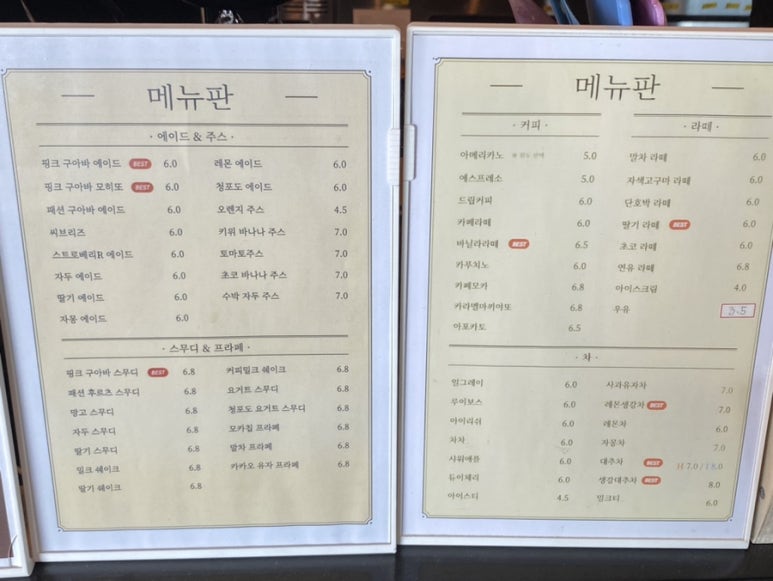 메뉴판
· 에이드 & 주스 ·
핑크 구아바 에이드 BEST 6.0
핑크 구아바 모히또 BEST 6.0
패션 구아바 에이드 6.0
씨브리즈 6.0
스트로베리R 에이드 6.0
자두 에이드 6.0
딸기 에이드 6.0
자몽 에이드 6.0
레몬 에이드 6.0
청포도 에이드 6.0
오렌지 주스 4.5
키위 바나나 주스 7.0
토마토주스 7.0
초코 바나나 주스 7.0
수박 자두 주스 7.0
· 스무디 & 프라페 ·
핑크 구아바 스무디 BEST 6.8
패션 후르츠 스무디 6.8
망고 스무디 6.8
자두 스무디 6.8
딸기 스무디 6.8
밀크 쉐이크 6.8
딸기 쉐이크 6.8
커피밀크 쉐이크 6.8
요거트 스무디 6.8
청포도 요거트 스무디 6.8
모카칩 프라페 6.8
말차 프라페 6.8
카카오 유자 프라페 6.8
메뉴판
· 커피 ·
아메리카노 5.0
에스프레소 5.0
드립커피 6.0
카페라떼 6.0
바닐라라떼 BEST 6.5
카푸치노 6.0
카페모카 6.8
카라멜마끼야또 6.8
아포카토 6.5
· 라떼 ·
말차 라떼 6.0
자색고구마 라떼 6.0
단호박 라떼 6.0
딸기 라떼 BEST 6.0
초코 라떼 6.0
연유 라떼 6.8
아이스크림 4.0
우유 3.5
· 차 ·
얼그레이 6.0
루이보스 6.0
아이리쉬 6.0
차차 6.0
사워애플 6.0
듀이체리 6.0
아이스티 4.5
사과유자차 7.0
레몬생강차 BEST 7.0
레몬차 6.0
자몽차 7.0
대추차 BEST H 7.0 / I 8.0
생강대추차 BEST 8.0
밀크티 6.0